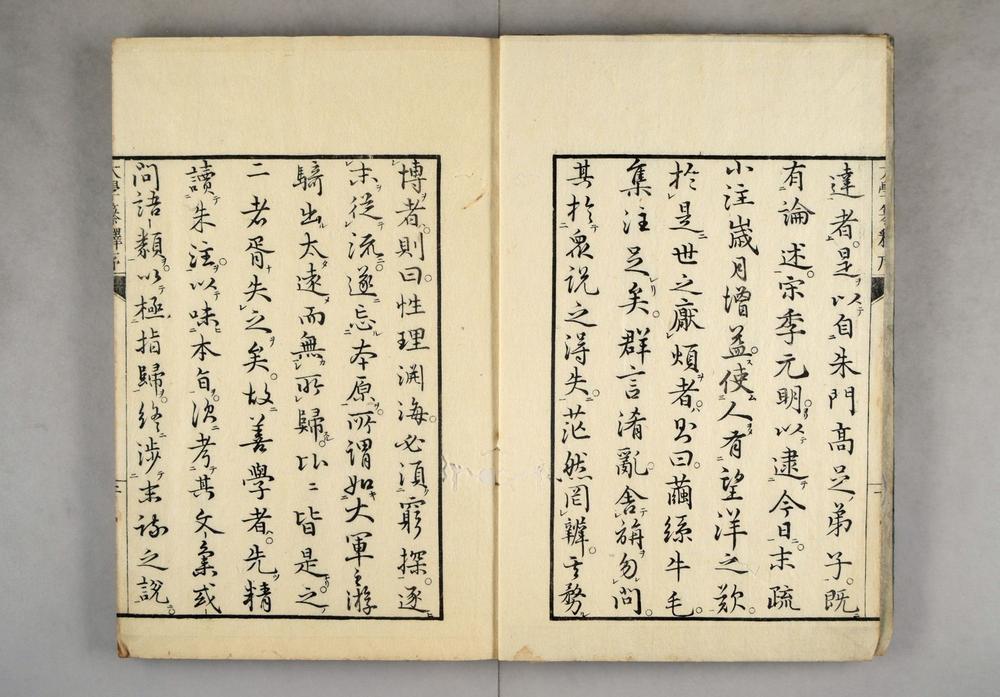 達者是以自朱門高足弟子既
有論述宋季元明以逮今日末疏
小注歳月増益使人有望洋之歎
於是世之厭煩者則曰繭絲牛毛
集注足矣群言淆亂舎旃勿問
其於衆説之得失茫然罔辨其務
博者則曰性理淵海必須窮探逐
末從流遂忘本原所谓如大軍之游
騎出太遠而無所歸比比皆是之
二者胥失之矣故善學者先精
讀朱注以味本旨次考其文彙或
問語類以極指歸終涉末疏之説
大學纂釋序